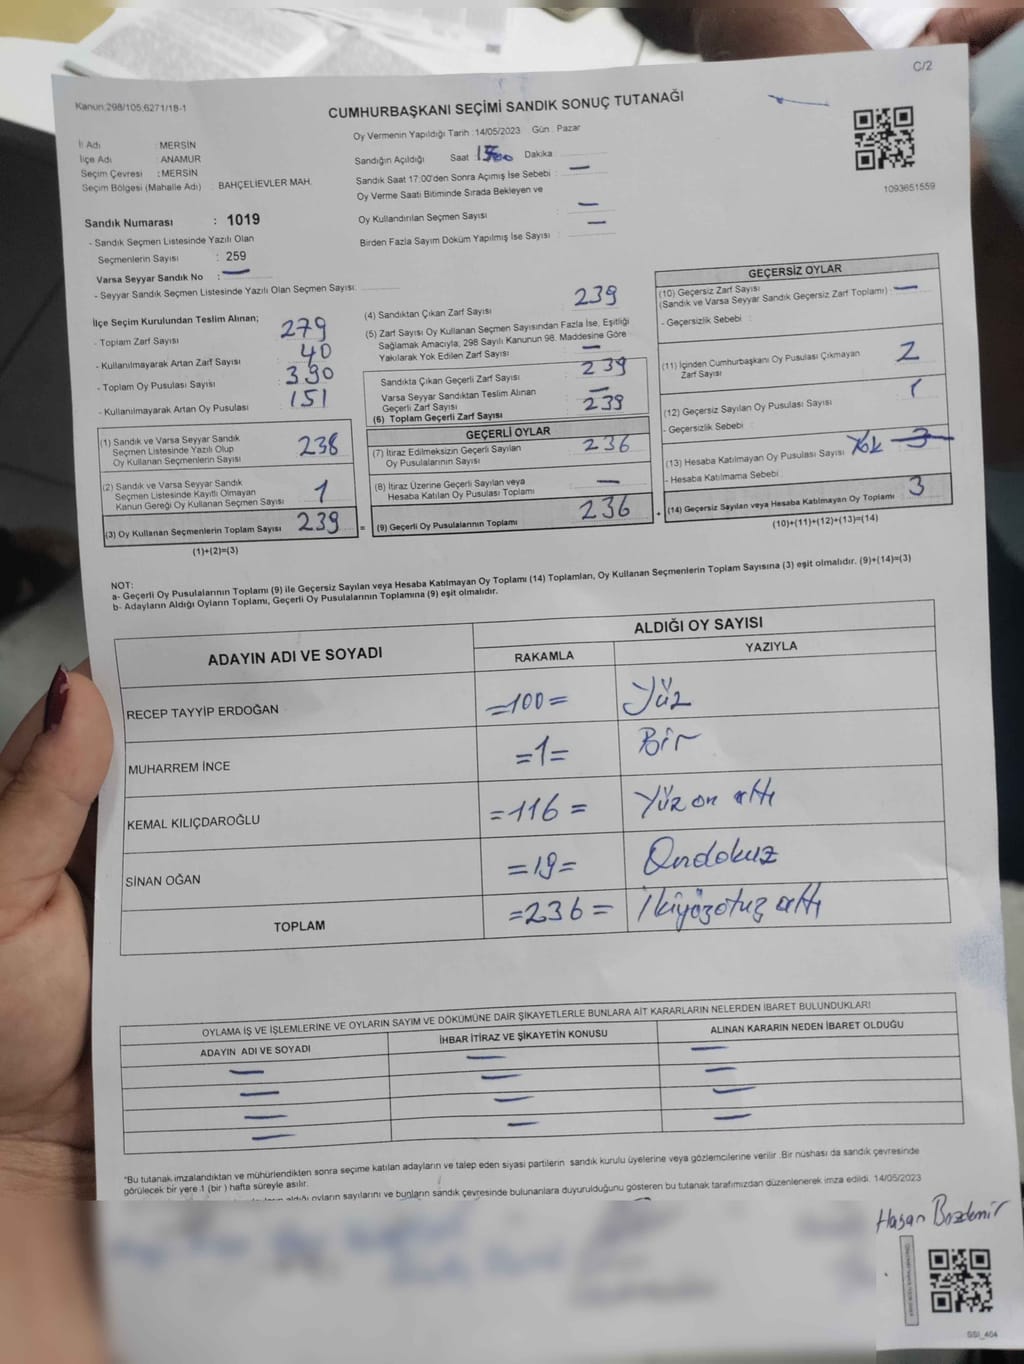 C/2
Kanun:298/105,6271/18-1
CUMHURBAŞKANI SEÇİMİ SANDIK SONUÇ TUTANAĞI
1093651559
İl Adı : MERSİN
İlçe Adı : ANAMUR
Seçim Çevresi : MERSİN
Seçim Bölgesi (Mahalle Adı) : BAHÇELİEVLER MAH.
Oy Vermenin Yapıldığı Tarih : 14/05/2023 Gün : Pazar
Sandığın Açıldığı Saat Dakika
Sandık Saat 17:00'den Sonra Açımış İse Sebebi : —
Oy Verme Saati Bitiminde Sırada Bekleyen ve
Oy Kullandırılan Seçmen Sayısı : —
Birden Fazla Sayım Döküm Yapılmış İse Sayısı : —
Sandık Numarası : 1019
- Sandık Seçmen Listesinde Yazılı Olan
Seçmenlerin Sayısı : 259
Varsa Seyyar Sandık No : —
- Seyyar Sandık Seçmen Listesinde Yazılı Olan Seçmen Sayısı:
İlçe Seçim Kurulundan Teslim Alınan;
- Toplam Zarf Sayısı : 279
- Kullanılmayarak Artan Zarf Sayısı : 40
- Toplam Oy Pusulası Sayısı : 390
- Kullanılmayarak Artan Oy Pusulası : 151
(1) Sandık ve Varsa Seyyar Sandık
Seçmen Listesinde Yazılı Olup
Oy Kullanan Seçmenlerin Sayısı 238
(2) Sandık ve Varsa Seyyar Sandık
Seçmen Listesinde Kayıtlı Olmayan
Kanun Gereği Oy Kullanan Seçmen Sayısı 1
(3) Oy Kullanan Seçmenlerin Toplam Sayısı 239 =
(1)+(2)=(3)
(4) Sandıktan Çıkan Zarf Sayısı 239
(5) Zarf Sayısı Oy Kullanan Seçmen Sayısından Fazla İse, Eşitliği
Sağlamak Amacıyla, 298 Sayılı Kanunun 98. Maddesine Göre
Yakılarak Yok Edilen Zarf Sayısı : —
Sandıkta Çıkan Geçerli Zarf Sayısı : 239
Varsa Seyyar Sandıktan Teslim Alınan
Geçerli Zarf Sayısı : —
(6) Toplam Geçerli Zarf Sayısı : 239
GEÇERLİ OYLAR
(7) İtiraz Edilmeksizin Geçerli Sayılan
Oy Pusulalarının Sayısı 236
(8) İtiraz Üzerine Geçerli Sayılan veya
Hesaba Katılan Oy Pusulası Toplamı —
(9) Geçerli Oy Pusulalarının Toplamı 236 +
GEÇERSİZ OYLAR
(10) Geçersiz Zarf Sayısı
(Sandık ve Varsa Seyyar Sandık Geçersiz Zarf Toplamı) : —
- Geçersizlik Sebebi :
(11) İçinden Cumhurbaşkanı Oy Pusulası Çıkmayan
Zarf Sayısı 2
(12) Geçersiz Sayılan Oy Pusulası Sayısı 1
- Geçersizlik Sebebi :
(13) Hesaba Katılmayan Oy Pusulası Sayısı Yok 3
- Hesaba Katılmama Sebebi :
(14) Geçersiz Sayılan veya Hesaba Katılmayan Oy Toplamı 3
(10)+(11)+(12)+(13)=(14)
NOT:
a- Geçerli Oy Pusulalarının Toplamı (9) ile Geçersiz Sayılan veya Hesaba Katılmayan Oy Toplamı (14) Toplamları, Oy Kullanan Seçmenlerin Toplam Sayısına (3) eşit olmalıdır. (9)+(14)=(3)
b- Adayların Aldığı Oyların Toplamı, Geçerli Oy Pusulalarının Toplamına (9) eşit olmalıdır.
ADAYIN ADI VE SOYADI ALDIĞI OY SAYISI
RAKAMLA YAZIYLA
RECEP TAYYİP ERDOĞAN =100= Yüz
MUHARREM İNCE =1= Bir
KEMAL KILIÇDAROĞLU =116= Yüz on altı
SİNAN OĞAN =19= Ondokuz
TOPLAM =236= İkiyüzotuz altı
OYLAMA İŞ VE İŞLEMLERİNE VE OYLARIN SAYIM VE DÖKÜMÜNE DAİR ŞİKAYETLERLE BUNLARA AİT KARARLARIN NELERDEN İBARET BULUNDUKLARI
ADAYIN ADI VE SOYADI İHBAR İTİRAZ VE ŞİKAYETİN KONUSU ALINAN KARARIN NEDEN İBARET OLDUĞU
— — —
— — —
— — —
— — —
"Bu tutanak imzalandıktan ve mühürlendikten sonra seçime katılan adayların ve talep eden siyasi partilerin sandık kurulu üyelerine veya gözlemcilerine verilir. Bir nüshası da sandık çevresinde
görülecek bir yere 1 (bir) hafta süreyle asılır.
aldığı oyların sayılarını ve bunların sandık çevresinde bulunanlara duyurulduğunu gösteren bu tutanak tarafımızdan düzenlenerek imza edildi. 14/05/2023
Hasan Bozdemir
SSI_404